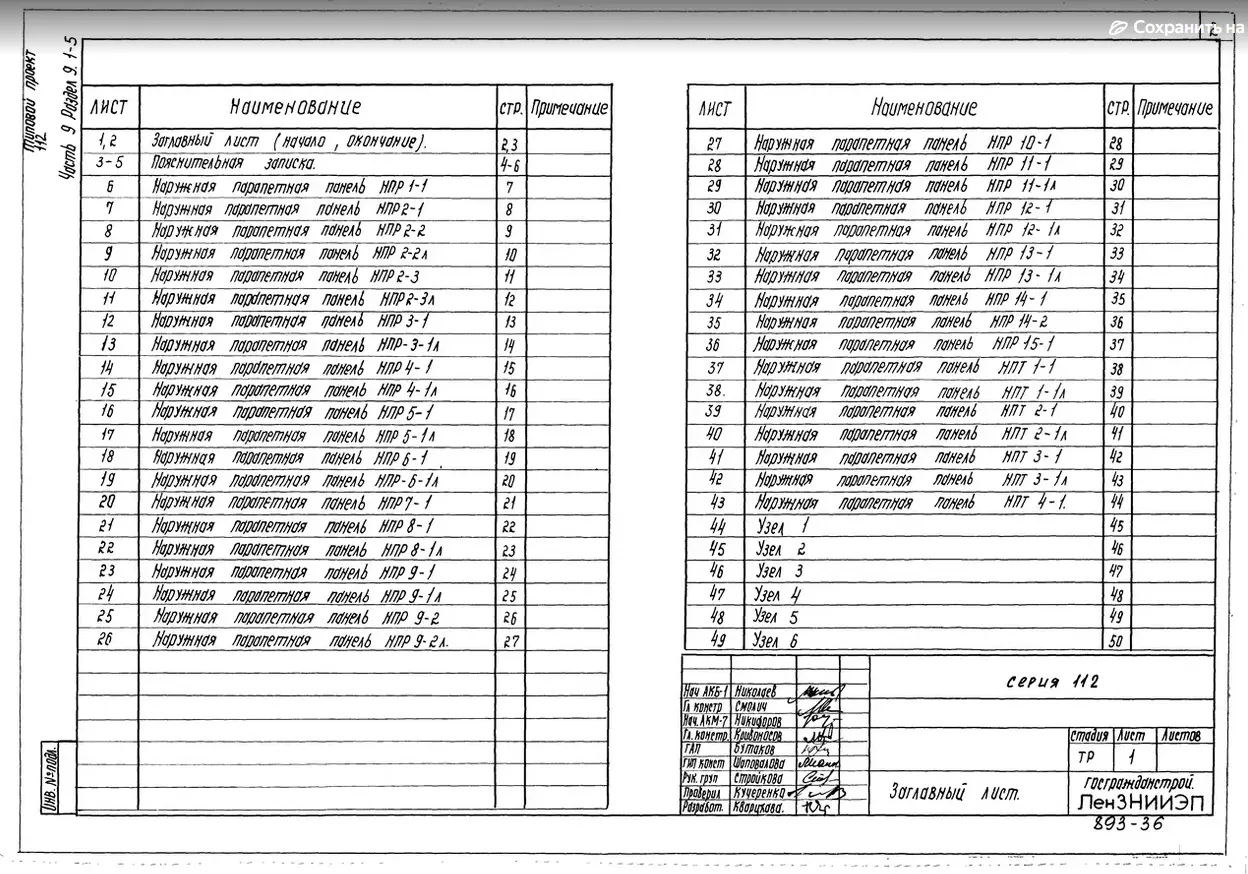 Сохранить на
2
Типовой проект
112
Часть 9 Раздел 9.1-5
ЛИСТ Наименование стр. Примечание
1,2 Заглавный лист (начало, окончание). 2,3
3-5 Пояснительная записка. 4-6
6 Наружная парапетная панель НПР 1-1 7
7 Наружная парапетная панель НПР 2-1 8
8 Наружная парапетная панель НПР 2-2 9
9 Наружная парапетная панель НПР 2-2л 10
10 Наружная парапетная панель НПР 2-3 11
11 Наружная парапетная панель НПР 2-3л 12
12 Наружная парапетная панель НПР 3-1 13
13 Наружная парапетная панель НПР-3-1л 14
14 Наружная парапетная панель НПР 4-1 15
15 Наружная парапетная панель НПР 4-1л 16
16 Наружная парапетная панель НПР 5-1 17
17 Наружная парапетная панель НПР 5-1л 18
18 Наружная парапетная панель НПР 6-1 19
19 Наружная парапетная панель НПР-6-1л 20
20 Наружная парапетная панель НПР 7-1 21
21 Наружная парапетная панель НПР 8-1 22
22 Наружная парапетная панель НПР 8-1л 23
23 Наружная парапетная панель НПР 9-1 24
24 Наружная парапетная панель НПР 9-1л 25
25 Наружная парапетная панель НПР 9-2 26
26 Наружная парапетная панель НПР 9-2л. 27
ЛИСТ Наименование стр. Примечание
27 Наружная парапетная панель НПР 10-1 28
28 Наружная парапетная панель НПР 11-1 29
29 Наружная парапетная панель НПР 11-1л 30
30 Наружная парапетная панель НПР 12-1 31
31 Наружная парапетная панель НПР 12-1л 32
32 Наружная парапетная панель НПР 13-1 33
33 Наружная парапетная панель НПР 13-1л 34
34 Наружная парапетная панель НПР 14-1 35
35 Наружная парапетная панель НПР 14-2 36
36 Наружная парапетная панель НПР 15-1 37
37 Наружная парапетная панель НПТ 1-1 38
38. Наружная парапетная панель НПТ 1-1л 39
39 Наружная парапетная панель НПТ 2-1 40
40 Наружная парапетная панель НПТ 2-1л 41
41 Наружная парапетная панель НПТ 3-1 42
42 Наружная парапетная панель НПТ 3-1л 43
43 Наружная парапетная панель НПТ 4-1. 44
44 Узел 1 45
45 Узел 2 46
46 Узел 3 47
47 Узел 4 48
48 Узел 5 49
49 Узел 6 50
Нач АКБ-1 Николаев
Гл констр Смолич
Нач. АКМ-7 Никифоров
Гл. констр. Кривоносов
ГАП Бутаков
ГИП конст Шаповалова
Рук. груп Стройкова
Проверил Кучеренко
Разработ. Кварцхава.
серия 112
Заглавный лист.
стадия Лист Листов
ТР 1
госгражданстрой.
ЛенЗНИИЭП
893-36
Инв. № подл.